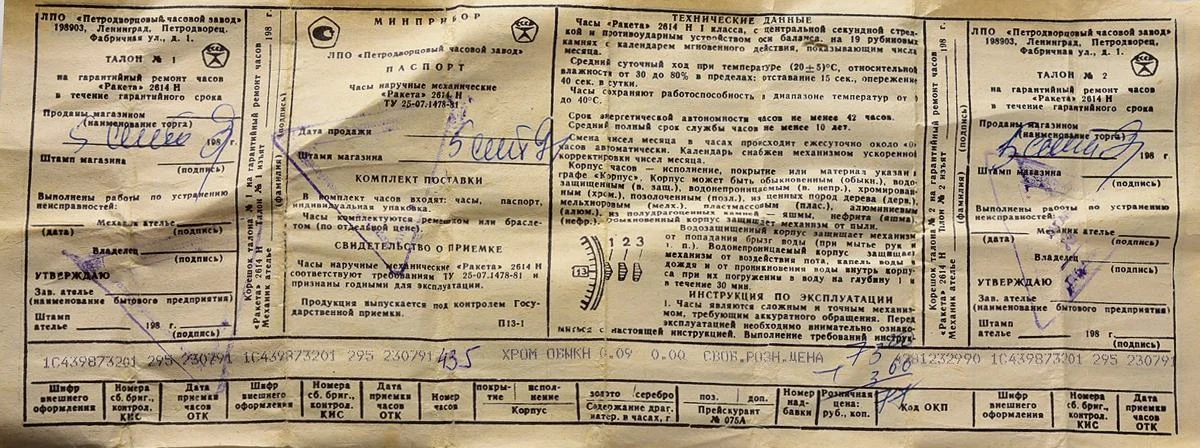 ЛПО «Петродворцовый часовой завод»
198903, Ленинград, Петродворец.
Фабричная ул., д. 1.
ТАЛОН № 1
на гарантийный ремонт часов
«Ракета» 2614 Н
в течение гарантийного срока
Проданы магазином
(наименование торга)
198 г.
Штамп магазина
(подпись)
Выполнены работы по устранению
неисправностей:
Механик ателье
(дата) (подпись)
Владелец
(подпись)
УТВЕРЖДАЮ
Зав. ателье
(наименование бытового предприятия)
Штамп
ателье 198 г.
(подпись)
Корешок талона № 1 на гарантийный ремонт часов
«Ракета» 2614 Н Талон № 1 изъят 198 г.
Механик ателье (фамилия) (подпись)
МИНПРИБОР
ЛПО «Петродворцовый часовой завод»
ПАСПОРТ
Часы наручные механические
«Ракета» 2614 Н
ТУ 25-07.1478-81
Дата продажи 5 сент 91
Штамп магазина
КОМПЛЕКТ ПОСТАВКИ
В комплект часов входят: часы, паспорт,
индивидуальная упаковка.
Часы комплектуются ремешком или брасле-
том (по отдельной цене).
СВИДЕТЕЛЬСТВО О ПРИЕМКЕ
Часы наручные механические «Ракета» 2614 Н
соответствуют требованиям ТУ 25-07.1478-81 и
признаны годными для эксплуатации.
Продукция выпускается под контролем Госу-
дарственной приемки.
П13-1
ТЕХНИЧЕСКИЕ ДАННЫЕ
Часы «Ракета» 2614 Н I класса, с центральной секундной стрел-
кой и противоударным устройством оси баланса, на 19 рубиновых
камнях с календарем мгновенного действия, показывающим числа
месяца.
Средний суточный ход при температуре (20±5)°С, относительной
влажности от 30 до 80% в пределах: отставание 15 сек., опережение
40 сек. в сутки.
Часы сохраняют работоспособность в диапазоне температур от
до 40°С.
Срок энергетической автономности часов не менее 42 часов.
Средний полный срок службы часов не менее 10 лет.
Смена чисел месяца в часах происходит ежесуточно около
часов автоматически. Календарь снабжен механизмом ускоренной
корректировки чисел месяца.
Корпус часов — исполнение, покрытие или материал указан в
графе «Корпус». Корпус может быть обыкновенным (обыкн.), водо-
защищенным (в. защ.), водонепроницаемым (в. непр.), хромирован-
ным (хром.), позолоченным (позл.), из ценных пород дерева (дерв.),
мельхиоровым (мелх.), пластмассовым (плас.), алюминиевым
(алюм.), из полудрагоценных камней — яшмы, нефрита (яшма)
(нефр.). Обыкновенный корпус защищает механизм от пыли.
Водозащищенный корпус защищает механизм
от попадания брызг воды (при мытье рук и
т. п.). Водонепроницаемый корпус защищает
механизм от воздействия пота, капель воды
дождя и от проникновения воды внутрь корпу-
са при их погружении в воду на глубину 1
в течение 30 мин.
1 2 3
13
ИНСТРУКЦИЯ ПО ЭКСПЛУАТАЦИИ
1. Часы являются сложным и точным механиз-
мом, требующим аккуратного обращения. Перед
эксплуатацией необходимо внимательно ознако-
миться с настоящей инструкцией. Выполнение требований инструк-
Корешок талона № 2 на гарантийный ремонт часов
«Ракета» 2614 Н Талон № 2 изъят 198 г.
Механик ателье (фамилия) (подпись)
ЛПО «Петродворцовый часовой завод»
198903, Ленинград, Петродворец,
Фабричная ул., д. 1.
ТАЛОН № 2
на гарантийный ремонт часов
«Ракета» 2614 Н
в течение гарантийного срока
Проданы магазином
(наименование торга)
198 г.
Штамп магазина
(подпись)
Выполнены работы по устранению
неисправностей:
Механик ателье
(дата) (подпись)
Владелец
(подпись)
УТВЕРЖДАЮ
Зав. ателье
(наименование бытового предприятия)
Штамп
ателье 198 г.
(подпись)
1С439873201 295 230791 1С439873201 295 230791 435 ХРОМ ОБЫКН 0.09 0.00 СВОБ.РОЗН.ЦЕНА 4281232990 1С439873201 295 230791
Шифр внешнего оформления
Номера сб. бриг., контрол. КИС
Дата приемки часов ОТК
Шифр внешнего оформления
Номера сб. бриг., контрол. КИС
Дата приемки часов ОТК
Номер часов
покры-тие
испол-нение
Корпус
золото
серебро
Содержание драг. матер. в часах, г
поз.
доп.
Прейскурант № 075А
Номер над-бавки
Розничная цена: руб., коп.
Код ОКП
Шифр внешнего оформления
Номера сб. бриг., контрол. КИС
Дата приемки часов ОТК